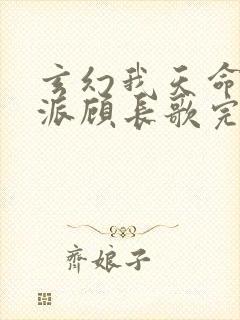 玄幻我天命
派顾长歌完
齐娘子